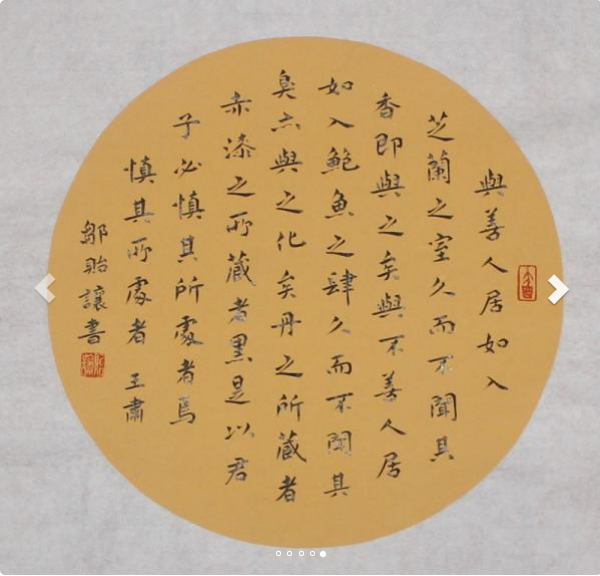 與善人居如入
芝蘭之室久而不聞其
香即與之矣與不善人居
如入鮑魚之肆久而不聞其
臭亦與之化矣丹之所藏者
赤漆之所藏者黑是以君
子必慎其所處者焉
慎其所處者 王肅
鄒貽讓書